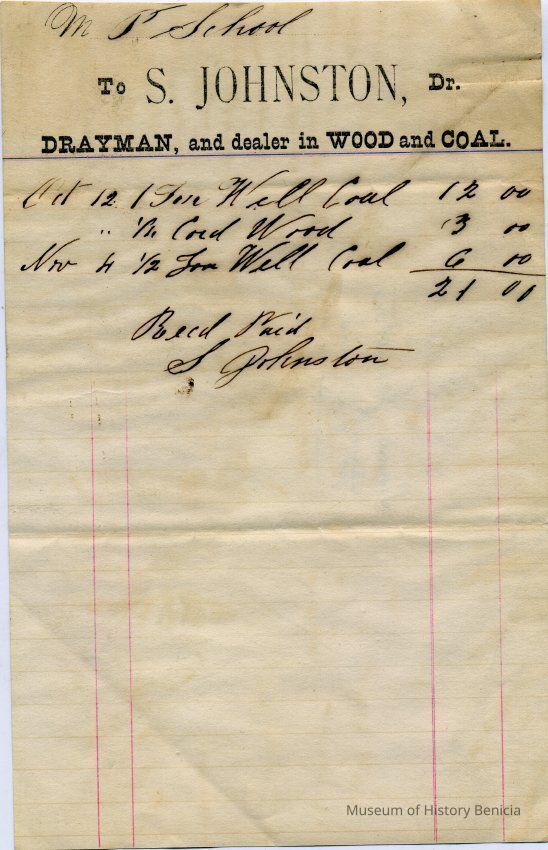 M P School
To S. JOHNSTON, Dr.
DRAYMAN, and dealer in WOOD and COAL.
Oct 12 1 Ton Well Coal 12 00
" 1/2 Cord Wood 3 00
Nov 4 1/2 Ton Well Coal 6 00
21 00
Recd Paid
S Johnston
Museum of History Benicia